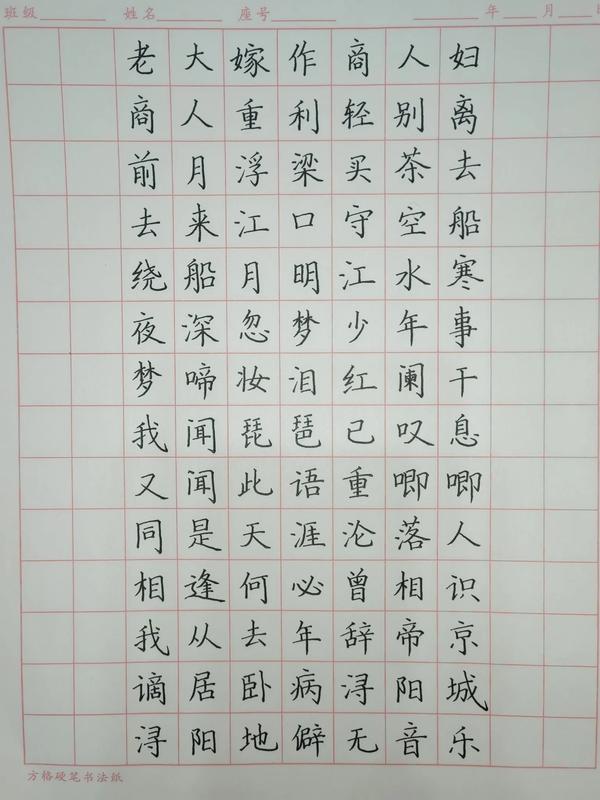 班级 姓名 座号 年 月
老大嫁作商人妇
商人重利轻别离
前月浮梁买茶去
去来江口守空船
绕船月明江水寒
夜深忽梦少年事
梦啼妆泪红阑干
我闻琵琶已叹息
又闻此语重唧唧
同是天涯沦落人
相逢何必曾相识
我从去年辞帝京
谪居卧病浔阳城
浔阳地僻无音乐
方格硬笔书法纸